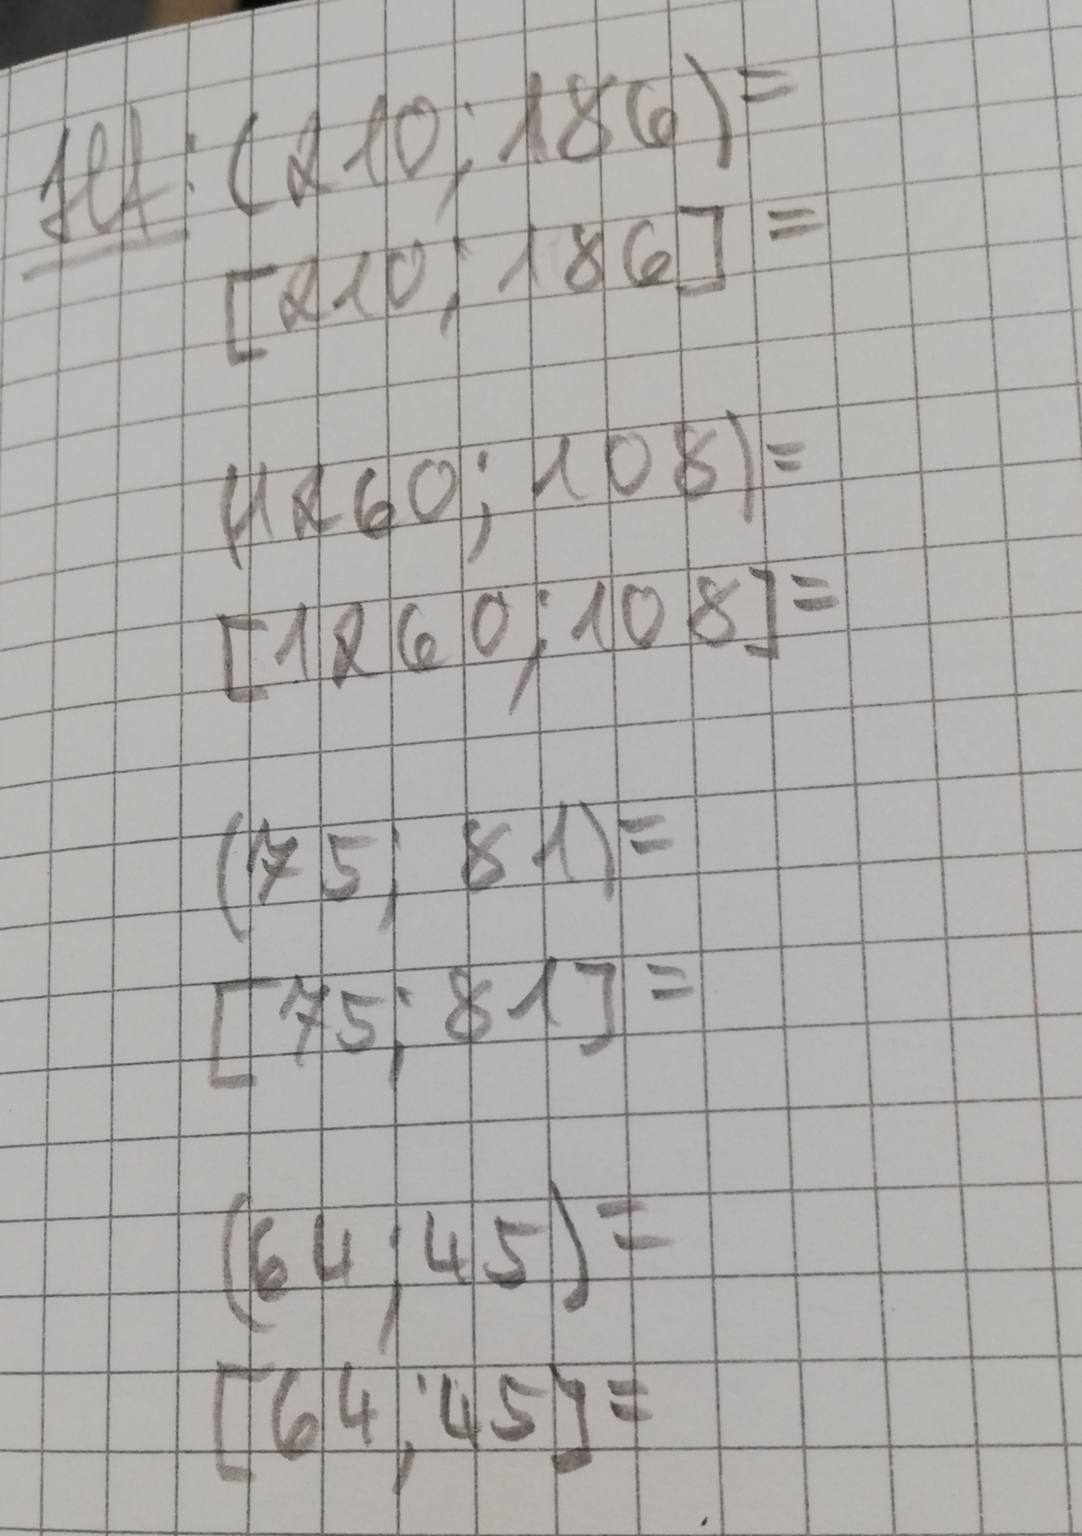 Hf: (210; 186) =
[210; 186] =
(1260; 108) =
[1260; 108] =
(75; 81) =
[75; 81] =
(64; 45) =
[64; 45] =